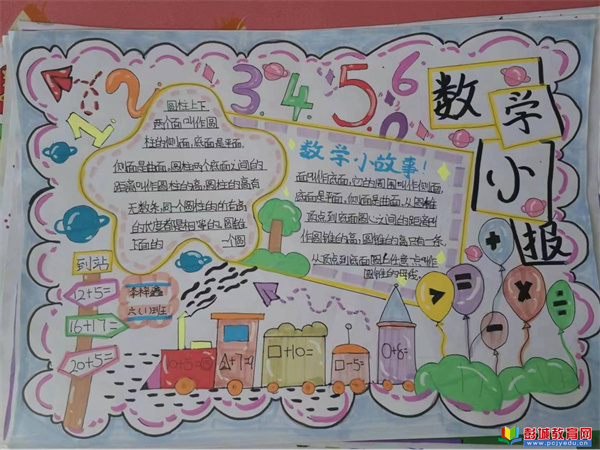 1. 2. 3. 4. 5. 6
数学小报
圆柱上下
两个面叫作圆
柱的侧面,底面是平面,
侧面是曲面,圆柱两个底面之间的
距离叫作圆柱的高,圆柱的高有
无数条,同一个圆柱的
的长度都是相等的
上面的 一个圆
数学小故事!
面叫作底面,它的周围叫作侧面,
底面是平面,侧面是曲面,从圆锥
顶点到底面圆心之间的距离叫
作圆锥的高,圆锥的高只有一条,
从顶点到底面圆上任意一点叫作
圆锥的母线.
到站
12+5=
16+17=
20+5=
六(1)班
△+7=9
□+10=
□-5=
□+8=
> = + - × ÷
彭城教育网
www.pcjyedu.cn